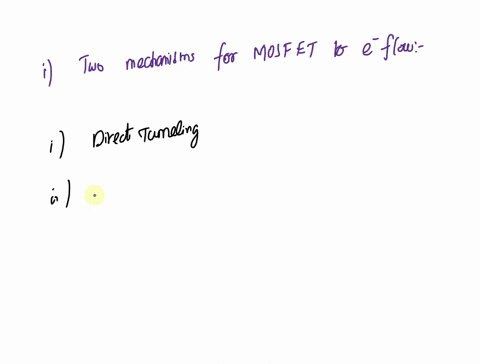 i) Two mechanisms for MOSFET to e⁻ flow:-
i) Direct Tunneling
ii)